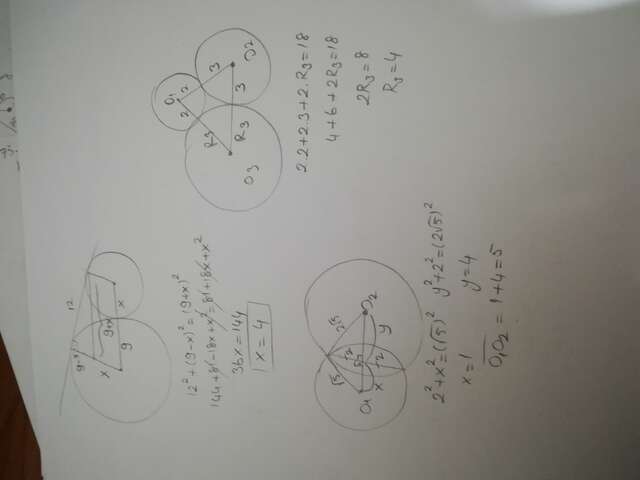 9-x
12
x
9+x
9
x
12² + (9-x)² = (9+x)²
144+81-18x+x² = 81+18x+x²
36x = 144
x = 4
O1
2
2
3
O2
3
R3
R3
O3
2.2+2.3+2.R3=18
4+6+2R3=18
2R3=8
R3=4
√5
2√5
2
2
O1
x
y
O2
2²+x²=(√5)²
y²+2²=(2√5)²
x=1
y=4
O1O2 = 1+4=5